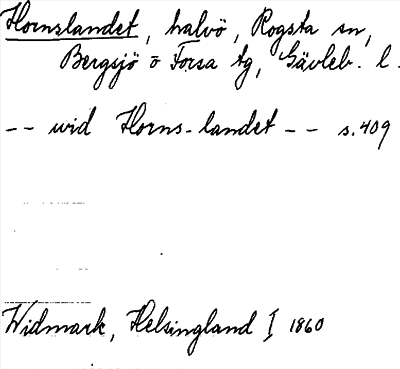 Hornslandet, halvö, Rogsta sn,
Bergsjö o Forsa tg, Gävleb. l.
-- wid Horns-landet -- s. 409
Widmark, Helsingland I 1860